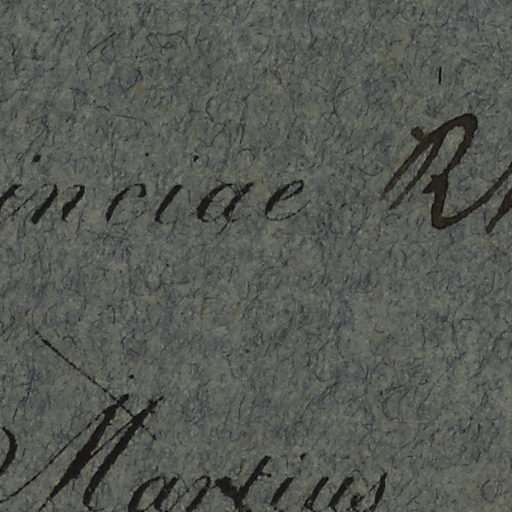 inciae R
Martius